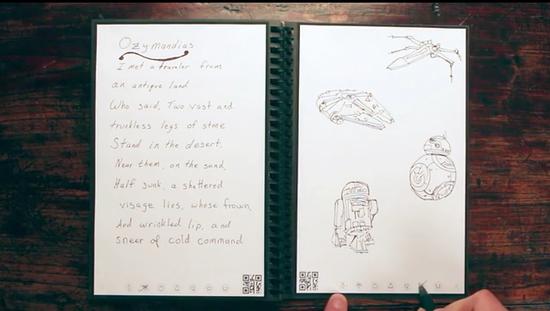 Ozymandias
I met a traveler from
an antique land
Who said, Two vast and
trunkless legs of stone
Stand in the desert.
Near them, on the sand,
Half sunk, a shattered
visage lies, whose frown,
And wrinkled lip, and
sneer of cold command